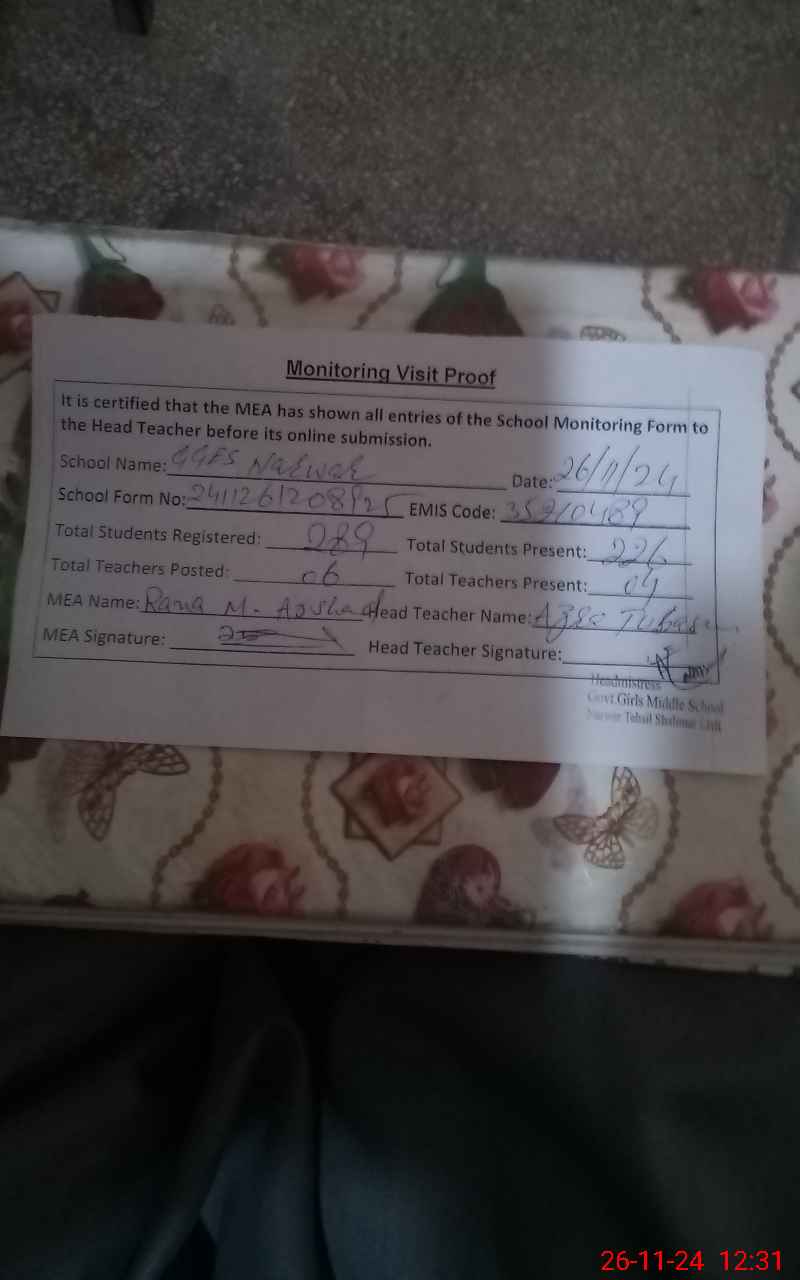 Monitoring Visit Proof
It is certified that the MEA has shown all entries of the School Monitoring Form to
the Head Teacher before its online submission.
School Name: GGES Narwar Date: 26/11/24
School Form No: 2411261208925 EMIS Code: 35210489
Total Students Registered: 289 Total Students Present: 226
Total Teachers Posted: 06 Total Teachers Present: 04
MEA Name: Rana M. Arshad Head Teacher Name:
MEA Signature: Head Teacher Signature:
Headmistress
Govt.Girls Middle School
Tehsil
26-11-24 12:31